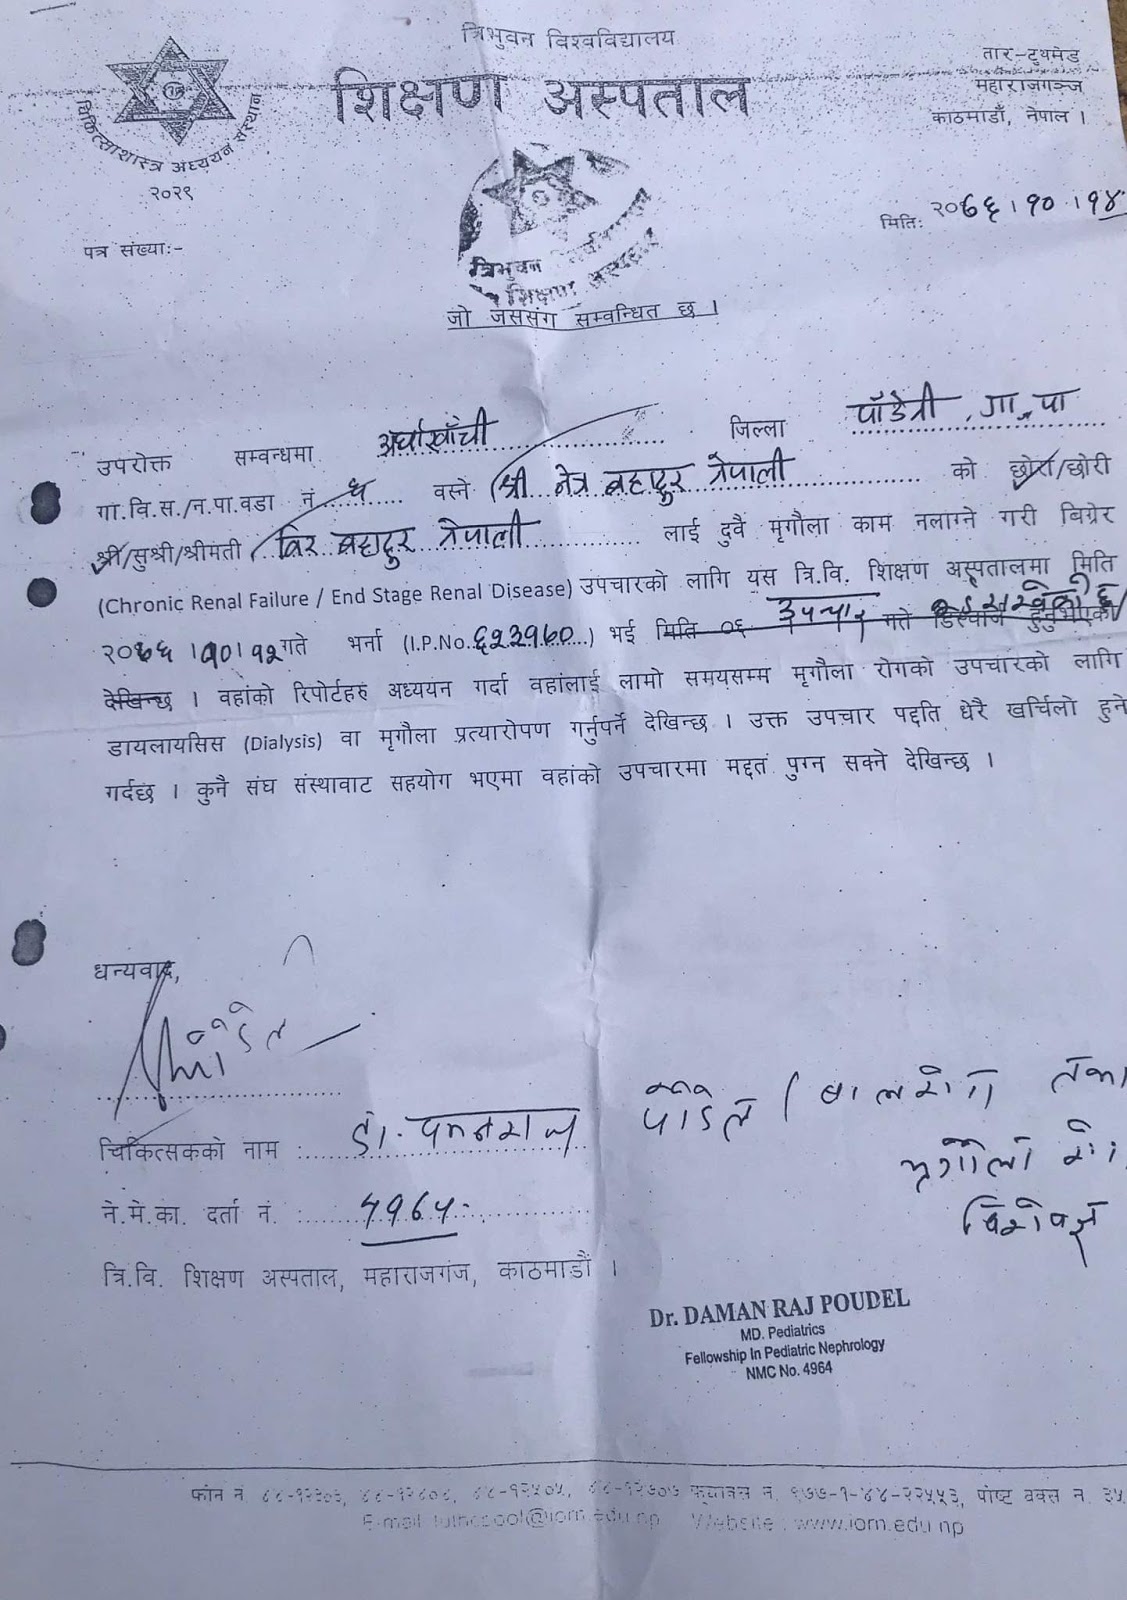 त्रिभुवन विश्वविद्यालय
शिक्षण अस्पताल
चिकित्साशास्त्र अध्ययन संस्थान
२०२९
तार-ट्युमेड
महाराजगञ्ज
काठमाडौं, नेपाल ।
त्रिभुवन
शिक्षण अस्पताल
मितिः २०७६।१०।१४
पत्र संख्याः-
जो जससंग सम्वन्धित छ ।
उपरोक्त सम्वन्धमा अर्घाखाँची जिल्ला पाँडेनी गा.पा
गा.वि.स./न.पा.वडा नं ५ वस्ने श्री नेत्र बहादुर नेपाली को छोरा/छोरी
श्री/सुश्री/श्रीमती विर बहादुर नेपाली लाई दुवै मृगौला काम नलाग्ने गरी बिग्रेर
(Chronic Renal Failure / End Stage Renal Disease) उपचारको लागि यस त्रि.वि. शिक्षण अस्पतालमा मिति
उपचार
२०७६।१०।१२ गते भर्ना (I.P.No. ६२३९७०) भई मिति ०६ गते डिस्चार्ज हुनुभएको
देखिन्छ । वहांको रिपोर्टहरु अध्ययन गर्दा वहांलाई लामो समयसम्म मृगौला रोगको उपचारको लागि
डायलायसिस (Dialysis) वा मृगौला प्रत्यारोपण गर्नुपर्ने देखिन्छ । उक्त उपचार पद्दति धेरै खर्चिलो हुने
गर्दछ । कुनै संघ संस्थावाट सहयोग भएमा वहांको उपचारमा मद्दत पुग्न सक्ने देखिन्छ ।
धन्यवाद,
चिकित्सकको नाम : डा. दमनराज पौडेल (बालरोग तथा
मृगौला रोग
विशेषज्ञ
ने.मे.का. दर्ता नं. : ४९६४
त्रि.वि. शिक्षण अस्पताल, महाराजगंज, काठमाडौं ।
Dr. DAMAN RAJ POUDEL
MD. Pediatrics
Fellowship In Pediatric Nephrology
NMC No. 4964
फोन नं ४४-१२३०३, ४४-१२४०४, ४४-१२५०५, ४४-१२७०७ फ्याक्स नं. ९७७-१-४४-२२५५३, पोष्ट वक्स नं. ३५
Website : www.iom.edu.np